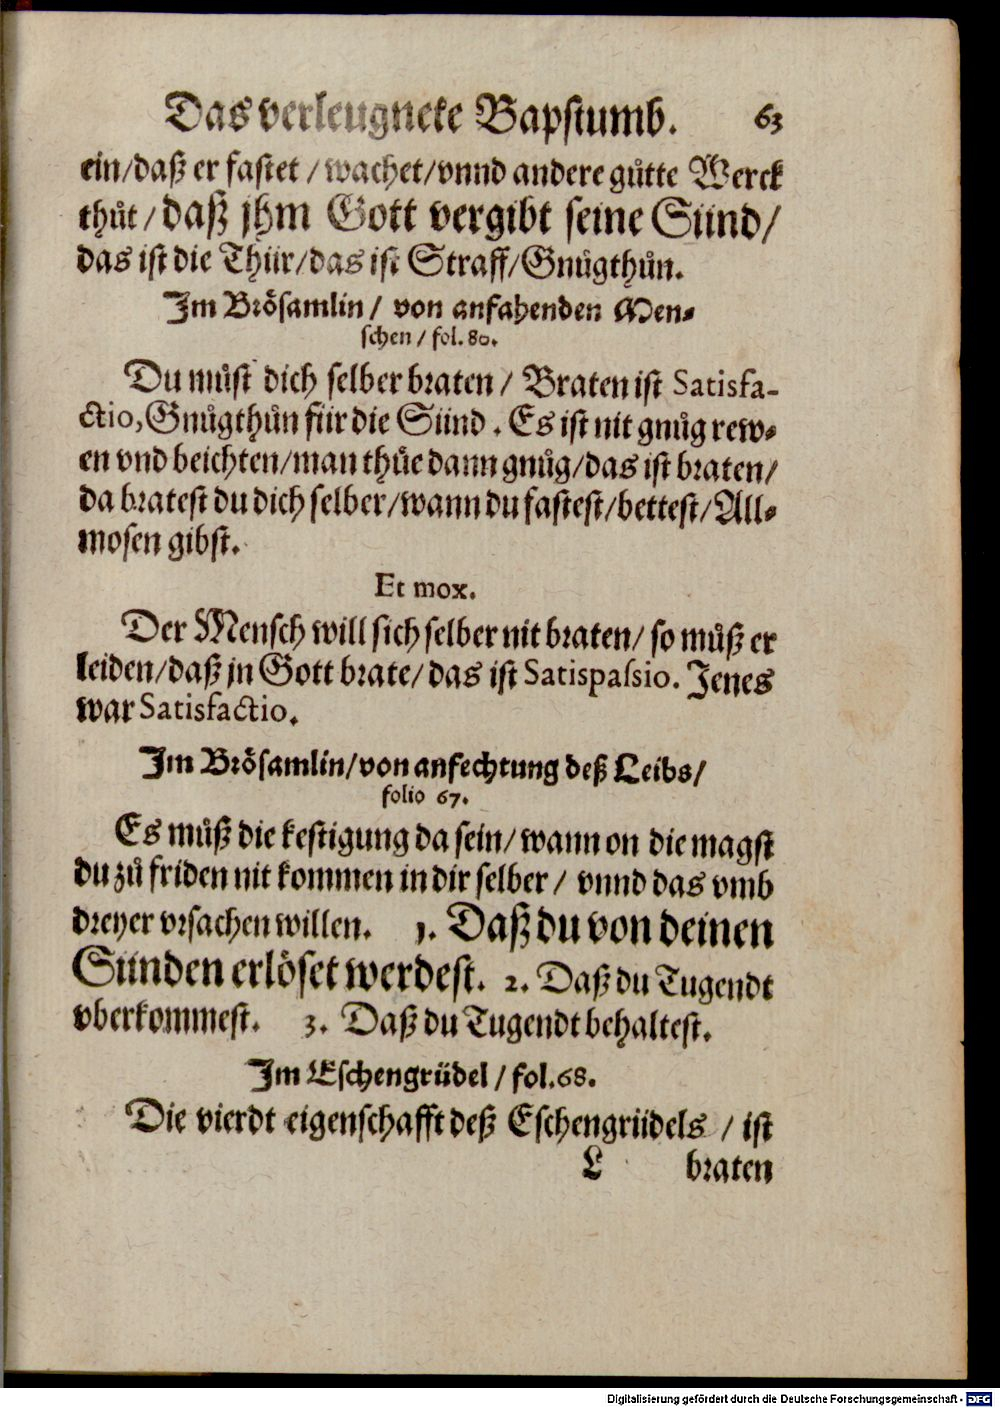 Das verleugnete Bapstumb. 63
ein/daß er fastet / wachet/vnnd andere gůtte Werck
thůt / daß jhm Gott vergibt seine Sünd/
das ist die Thür/das ist Straff/Gnůgthůn.
Im Brösamlin / von anfahenden Men⸗
schen / fol. 80.
Du můst dich selber braten / Braten ist Satisfa-
ctio, Gnůgthůn für die Sünd . Es ist nit gnůg rew⸗
en vnd beichten/man thůe dann gnůg/das ist braten/
da bratest du dich selber/wann du fastest/bettest/All⸗
mosen gibst.
Et mox.
Der Mensch will sich selber nit braten/ so můß er
leiden/daß jn Gott brate/das ist Satispaſsio. Jenes
war Satisfactio.
Im Brösamlin/von anfechtung deß Leibs/
folio 67.
Es můß die kestigung da sein/wann on die magst
du zů friden nit kommen in dir selber/ vnnd das vmb
dreyer vrsachen willen. 1. Daß du von deinen
Sünden erlöset werdest. 2. Daß du Tugendt
vberkommest. 3. Daß du Tugendt behaltest.
Im Eschengrüdel / fol.68.
Die vierdt eigenschafft deß Eschengrüdels / ist
L braten
Digitalisierung gefördert durch die Deutsche Forschungsgemeinschaft - DFG